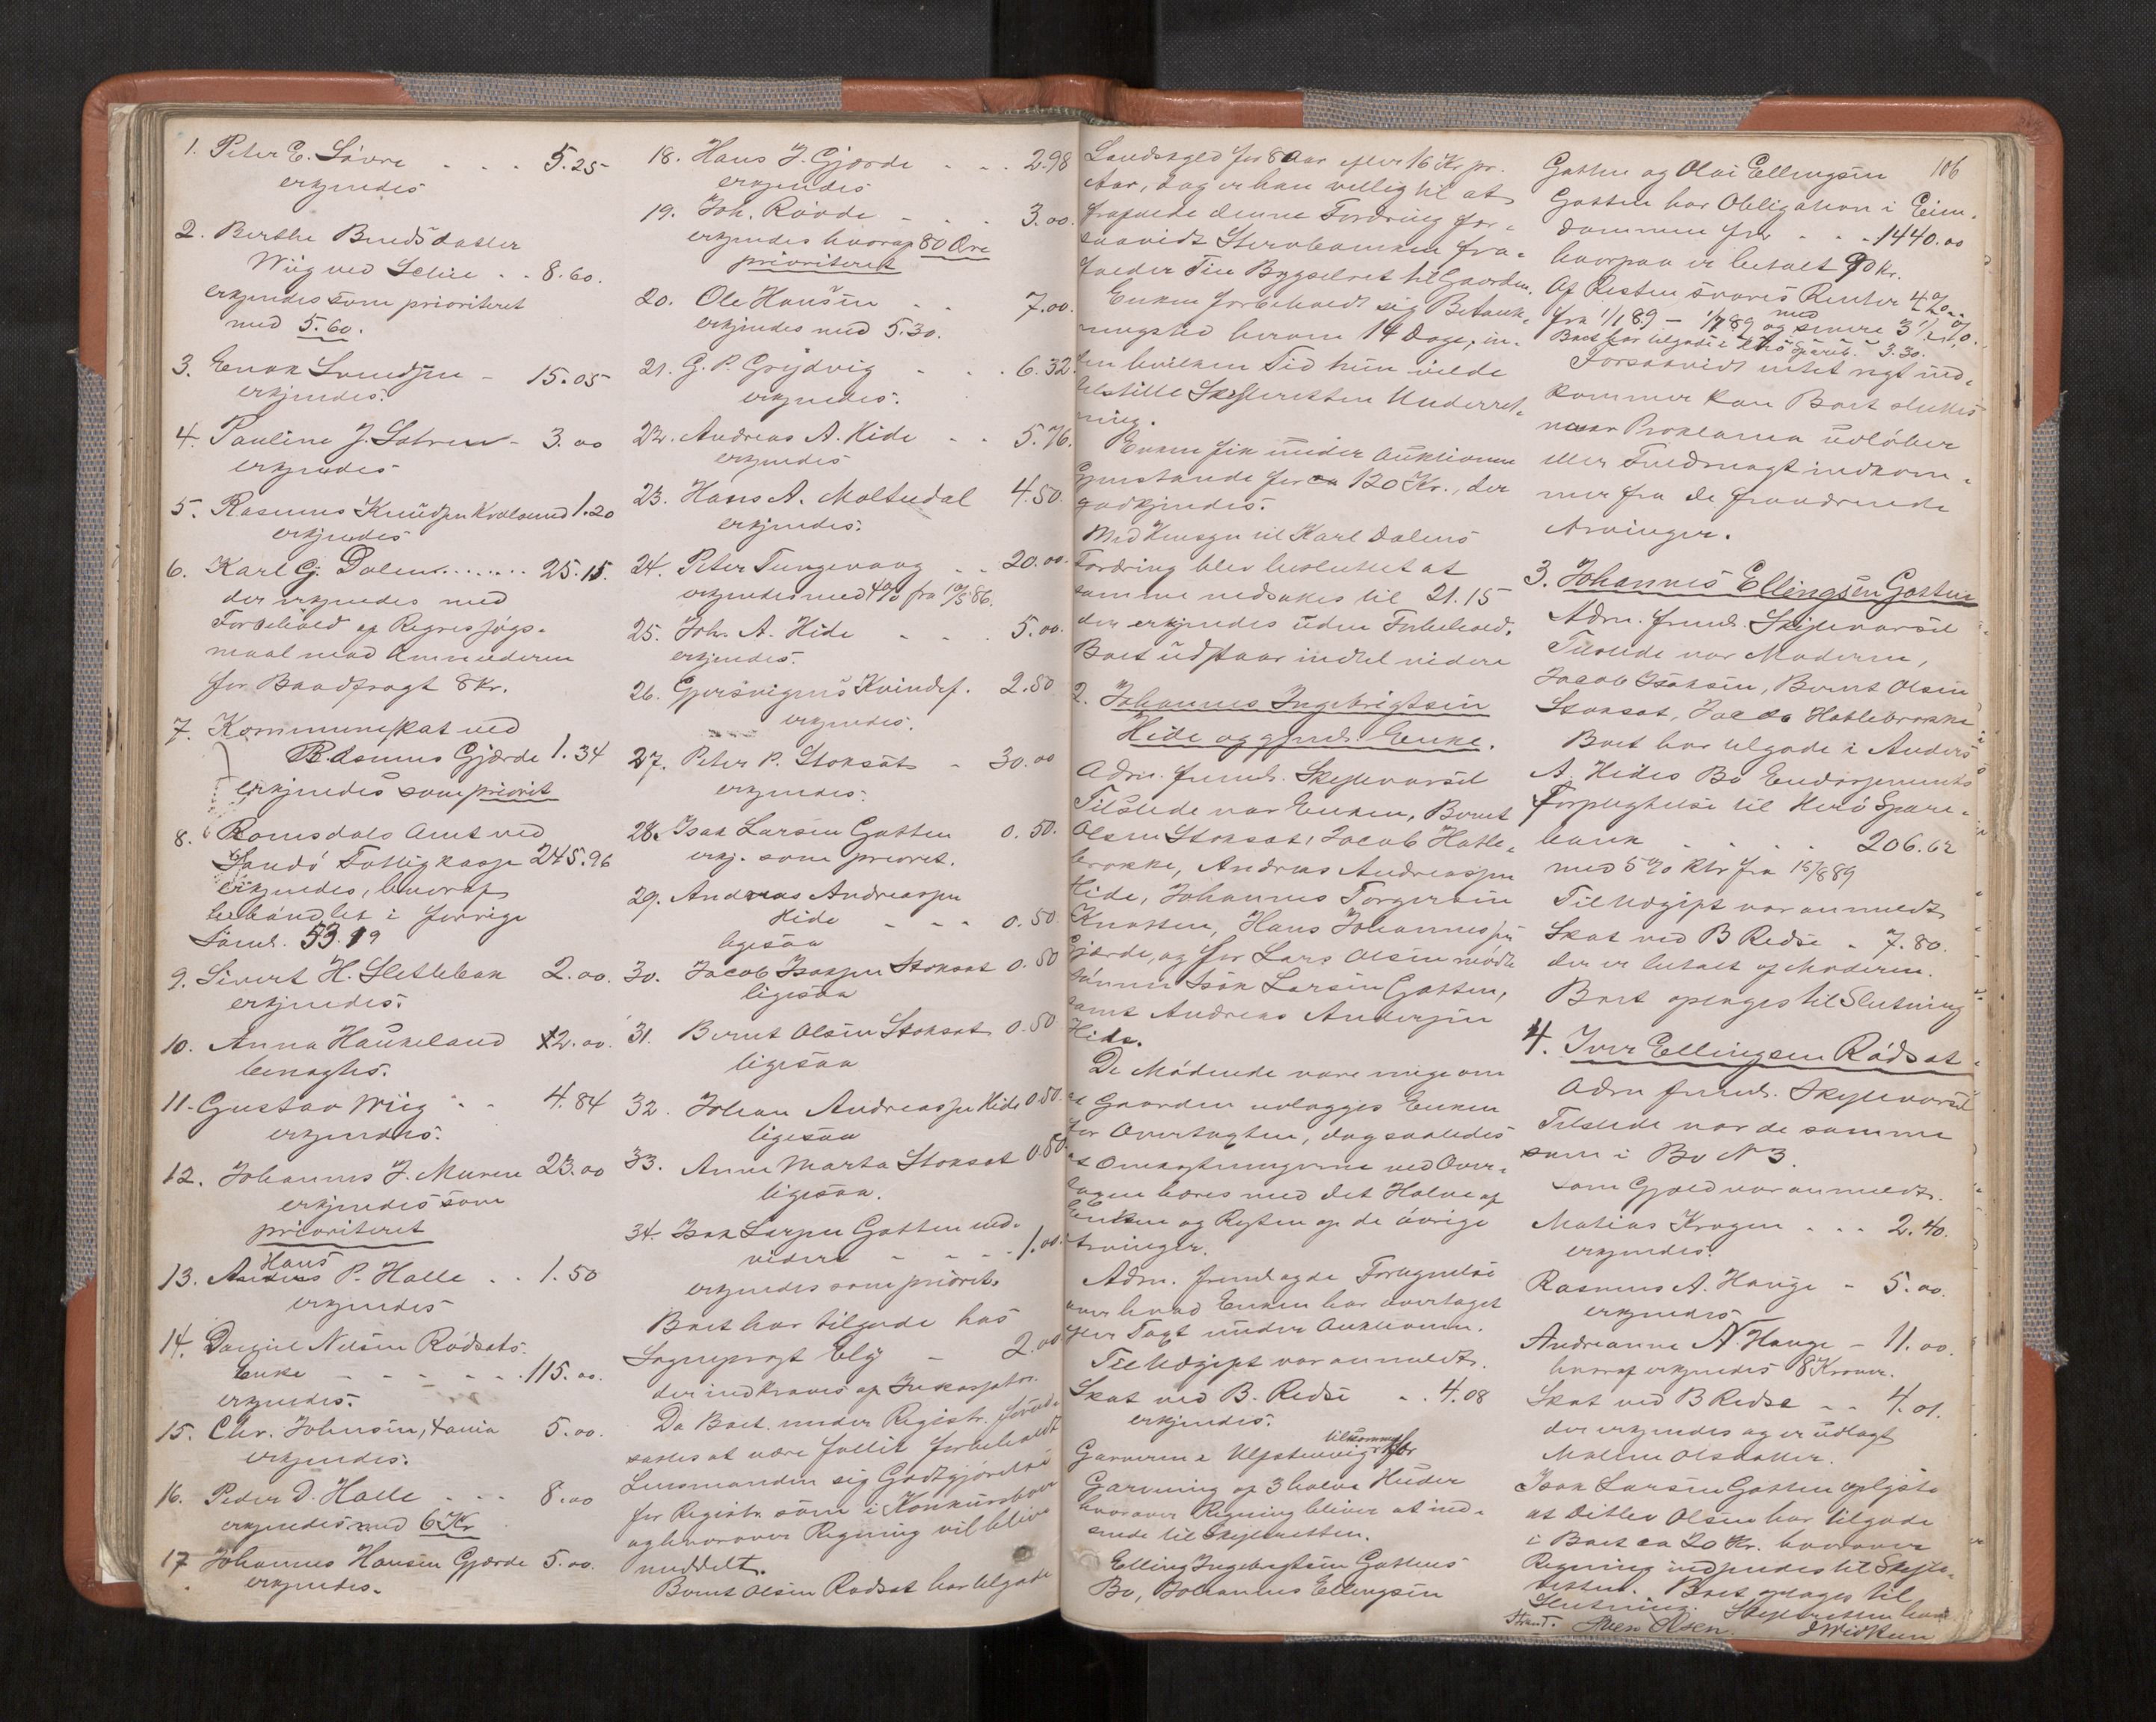 1. Peter E. Løvre - - - 5.25
erkjendes
2. Berthe Bendsdatter
Wiig ved Selii - - 8.60.
erkjendes som prioriteret
med 5.60.
3. Enok Svendsen - 15.05
erkjendes.
4. Pauline J. Sætren - 3.00
erkjendes
5. Rasmus Knudsen Kvalsund 1.20
erkjendes
6. Karl G. Dalen ....... 25.15.
der erkjendes med
Forbehold af Regressøgs-
maal mod Anmelderen
for Baadfragt 8 Kr.
7. Kommuneskat ved
Rasmus Gjærde 1.34
erkjendes som priorit
8. Romsdals Amt ved
Sandö Fattigkasse 245.96
erkjendes, hvoraf
behandlet i forrige
Saml. 53.19
9. Sivert H. Sletteback 2.00.
erkjendes.
10. Anna Haukeland 12.00.
benægtes.
11. Gustav Wiig - - 4.84
erkjendes.
12. Johannes J. Muren 23.00
erkjendes som
prioriteret
13. Hans P. Halle . . 1.50
erkjendes
14. Daniel Nilsen Rödsets
Enke - - - - - 115.00.
erkjendes.
15. Chr. Johnsen, Larvia 5.00.
erkjendes.
16. Peder D. Halle - - - 8.00
erkjendes med 6 Kr
17 Johannes Hansen Gjærde 5.00.
erkjendes.
18. Hans J. Gjærde - - . 2.98
erkjendes
19. Joh. Røvde - - - 3.00.
erkjendes hvoraf 80 Øre
prioriteret
20. Ole Hansen - 7.00.
erkjendes med 5.30.
21. G. P. Grijdvig - - . 6.32
erkjendes.
22. Andreas A. Hide - - 5.76.
erkjendes
23. Hans A. Moltudal 4.50.
erkjendes.
24. Peter Tungevaag - - 20.00.
erkjendes med 4% fra 19/5 86.
25. Joh. A. Hide - - - 5.00.
erkjendes.
26. Gjersvigens Kvindef. - 2.50
erkjendes.
27. Peter P. Stoksæt - 30.00
erkjendes.
28. Isak Larsen Gotten 0.50.
erkj. som prioret.
29. Andreas Andreassen
Hide - - - 0.50.
ligesaa
30. Jacob Isaksen Stoksæt 0.50
ligesaa
31. Bernt Olsen Stoksæt 0.50
ligesaa
32. Johan Andreassen Hide 0.50.
ligesaa
33. Anne Marta Stoksæt 0.50.
ligesaa.
34. Isak Larsen Gotten end-
videre - - - - 1.00.
erkjendes som prioret.
Boet har tilgode hos
Sogneprest Elý - 2.00
der indkræves af Inkassator.
Da Boet under Registr. forud-
sattes at være fallit forbeholdt
Lensmanden sig Godtgjørelse
for Registr. som i Konkursboer
og hvorover Regning vil blive
meddelt.
Bernt Olsen Rødset har tilgode
Landskyld for 8 Aar efter 16 Kr pr.
Aar, dog er han villig til at
frafalde denne Fordring for-
saavidt Stervboenken fra-
falder Sin Bygselret til Gaarden.
Enken forbeholdt sig Betænk-
ningstid herom 14 Dage, in-
den hvilken Tid hun vilde
tilstille Skifteretten Underret-
ning.
Enken fik under Auktionen
Gjenstande for ca 120 Kr., der
godkjendes.
Med Hensyn til Karl Dalens
Fordring blev besluttet at
samme nedsættes til 21.15
der erkjendes uden Forbehold.
Boet udstaar indtil videre
2. Johannes Ingebrigtsen
Hide og gjenl. Enke.
Adm. freml. Skiftevarsel
Tilstede var Enken, Bernt
Olsen Stoksæt, Jacob Hatle-
brække, Andreas Andreassen
Hide, Johannes Torgersen
Knotten, Hans Johannessen
Gjærde, og for Lars Olsen mødte
Sønnen Isak Larsen Gotten,
samt Andreas Andersen
Hide.
De Mødende vare enige om
at Gaarden udlægges Enken
for Overtagten, dog saaledes
at Omkostningerne ved Over-
tagten bæres med det Halve af
Enken og Resten af de øvrige
Arvinger.
Adm. fremlagde Fortegnelse
over hvad Enken har overtaget
efter Tagt under Auktionen.
Til Udgift var anmeldt.
Skat ved B. Redse - . 4.08
erkjendes.
Garveren i Ulfstenvig tilkommer for
Garvning af 3 halve Huder
hvorover Regning bliver at ind-
sende til Skifteretten.
Elling Ingebrigtsen Gottens
Bo, Johannes Ellingsen
106
Gotten og Olai Ellingsen
Gotten har Obligation i Eien-
dommen for - - - 1440.00
hvorpaa er betalt 90 Kr.
Af Resten svares Renter 4%
fra 1/1 89 - 1/7 89 og senere med 3 1/2 %.
Boet har tilgode i Herö Spareb. 3.30.
Forsaavidt intet nyt ind-
kommer kan Boet sluttes
naar Proklama udløber
eller Fuldmagt indkom-
mer fra de fraværende
Arvinger.
3. Johannes Ellingsen Gotten
Adm. freml. Skiftevarsel
Tilstede var Moderen,
Jacob Isaksen, Bernt Olsen
Stoksæt, Jacob Hatlebrække
Boet har tilgode i Anders
A. Hides Bo Endossements
Forpligtelse til Herö Spare-
bank - - - - 206.62
med 5% Rtr fra 15/8 89
Til Udgift var anmeldt
Skat ved B Redse - 7.80.
der er betalt af Moderen.
Boet optages til Slutning
4. Iver Ellingsen Rødsæt
Adm freml. Skiftevarsel
Tilstede var de samme
som i Bo N 3.
Som Gjæld var anmeldt.
Matias Kragen - - - 2.40.
erkjendes.
Rasmus A. Hauge - 5.00.
erkjendes
Andreanna N. Hauge - 11.00.
hvoraf erkjendes 8 Kroner.
Skat ved B Redse - - 4.01.
der erkjendes og er udlagt
Malene Olsdatter.
Isak Larsen Gotten oplyste
at Ditlev Olsen har tilgode
i Boet ca 20 Kr. hvorover
Regning indsendes til Skifte-
retten. Boet optages til
Slutning. Skifteretten hævet
Strand. Iver Olsen.